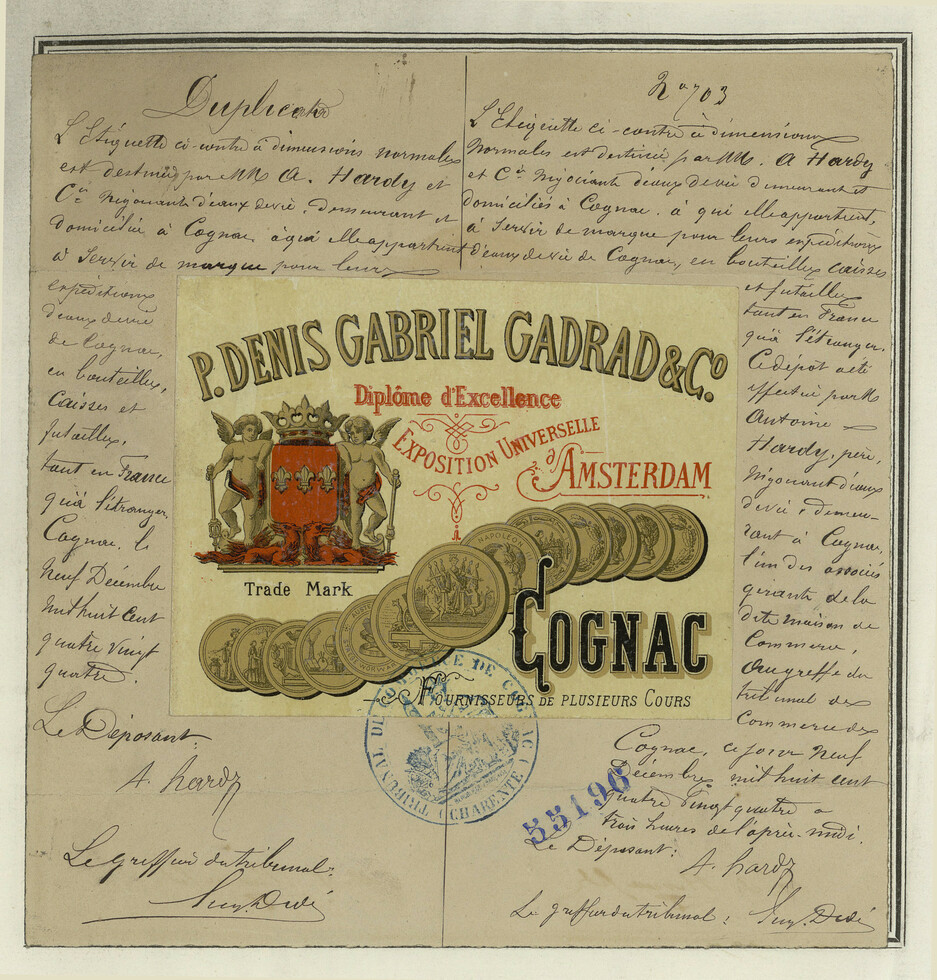 Duplicata
L'Etiquette ci-contre à dimensions normales
est destinée par MM A. Hardy et
Cie Négociants d'eaux de vie, demeurant et
domiciliés à Cognac, à qui elle appartient
à servir de marque pour leurs
expéditions
d'eaux de vie
de Cognac,
en bouteilles,
Caisses et
futailles,
tant en France
qu'à l'étranger.
Cognac, le
Neuf Décembre
mil huit cent
quatre vingt
quatre.
Le Déposant:
A. Hardy
Le greffier du tribunal:
No 703
L'Etiquette ci-contre à dimensions
normales est destinée par MM. A Hardy
et Cie Négociants d'eaux de vie demeurant et
domiciliés à Cognac, à qui elle appartient,
à servir de marque pour leurs expéditions
d'eaux de vie de Cognac, en bouteilles caisses
et futailles
tant en France
qu'à l'étranger.
Ce dépôt a été
effectué par M
Antoine
Hardy, père,
Négociant d'eaux
de vie, demeu-
rant à Cognac,
l'un des associés
gérants de la
dite maison de
Commerce,
au greffe du
tribunal de
Commerce de
Cognac, ce jour neuf
Décembre mil huit cent
quatre vingt quatre à
trois heures de l'après-midi.
Le Déposant:
A. Hardy
Le greffier du tribunal:
P. DENIS GABRIEL GADRAD & Co
Diplôme d'Excellence
EXPOSITION UNIVERSELLE
d'AMSTERDAM
NAPOLEON III
Trade Mark
COGNAC
FOURNISSEURS DE PLUSIEURS COURS
TRIBUNAL DE COMMERCE DE COGNAC
(CHARENTE)
55196